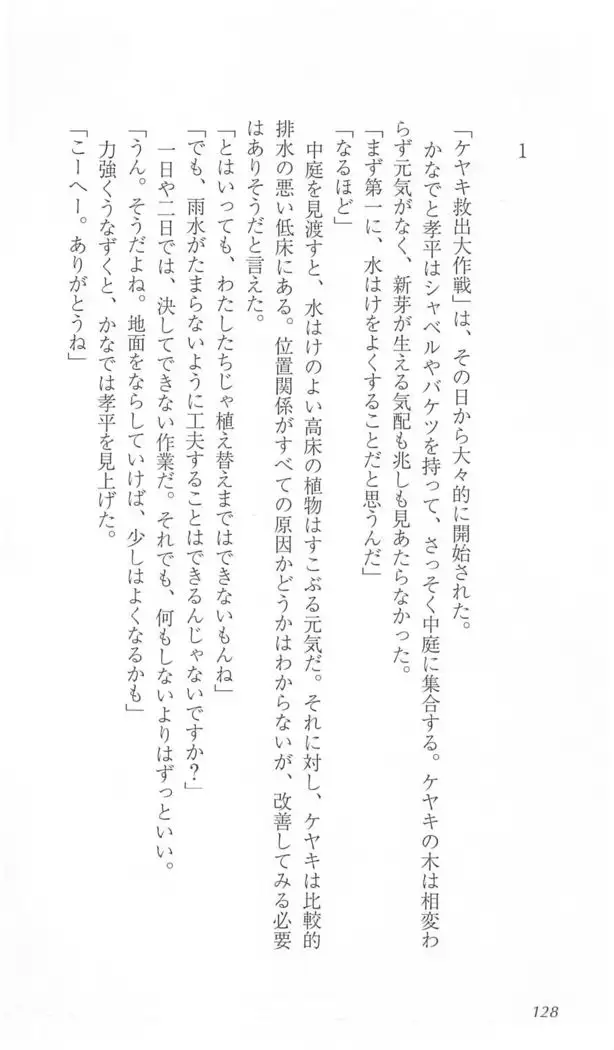 1
「ケヤキ救出大作戦」は、その日から大々的に開始された。
かなでと孝平はシャベルやバケツを持って、さっそく中庭に集合する。ケヤキの木は相変わ
らず元気がなく、新芽が生える気配も兆しも見あたらなかった。
「まず第一に、水はけをよくすることだと思うんだ」
「なるほど」
中庭を見渡すと、水はけのよい高床の植物はすこぶる元気だ。それに対し、ケヤキは比較的
排水の悪い低床にある。位置関係がすべての原因かどうかはわからないが、改善してみる必要
はありそうだと言えた。
「とはいっても、わたしたちじゃ植え替えまではできないもんね」
「でも、雨水がたまらないように工夫することはできるんじゃないですか?」
一日や二日では、決してできない作業だ。それでも、何もしないよりはずっといい。
「うん。そうだよね。地面をならしていけば、少しはよくなるかも」
力強くうなずくと、かなでは孝平を見上げた。
「こーへー。ありがとうね」
128